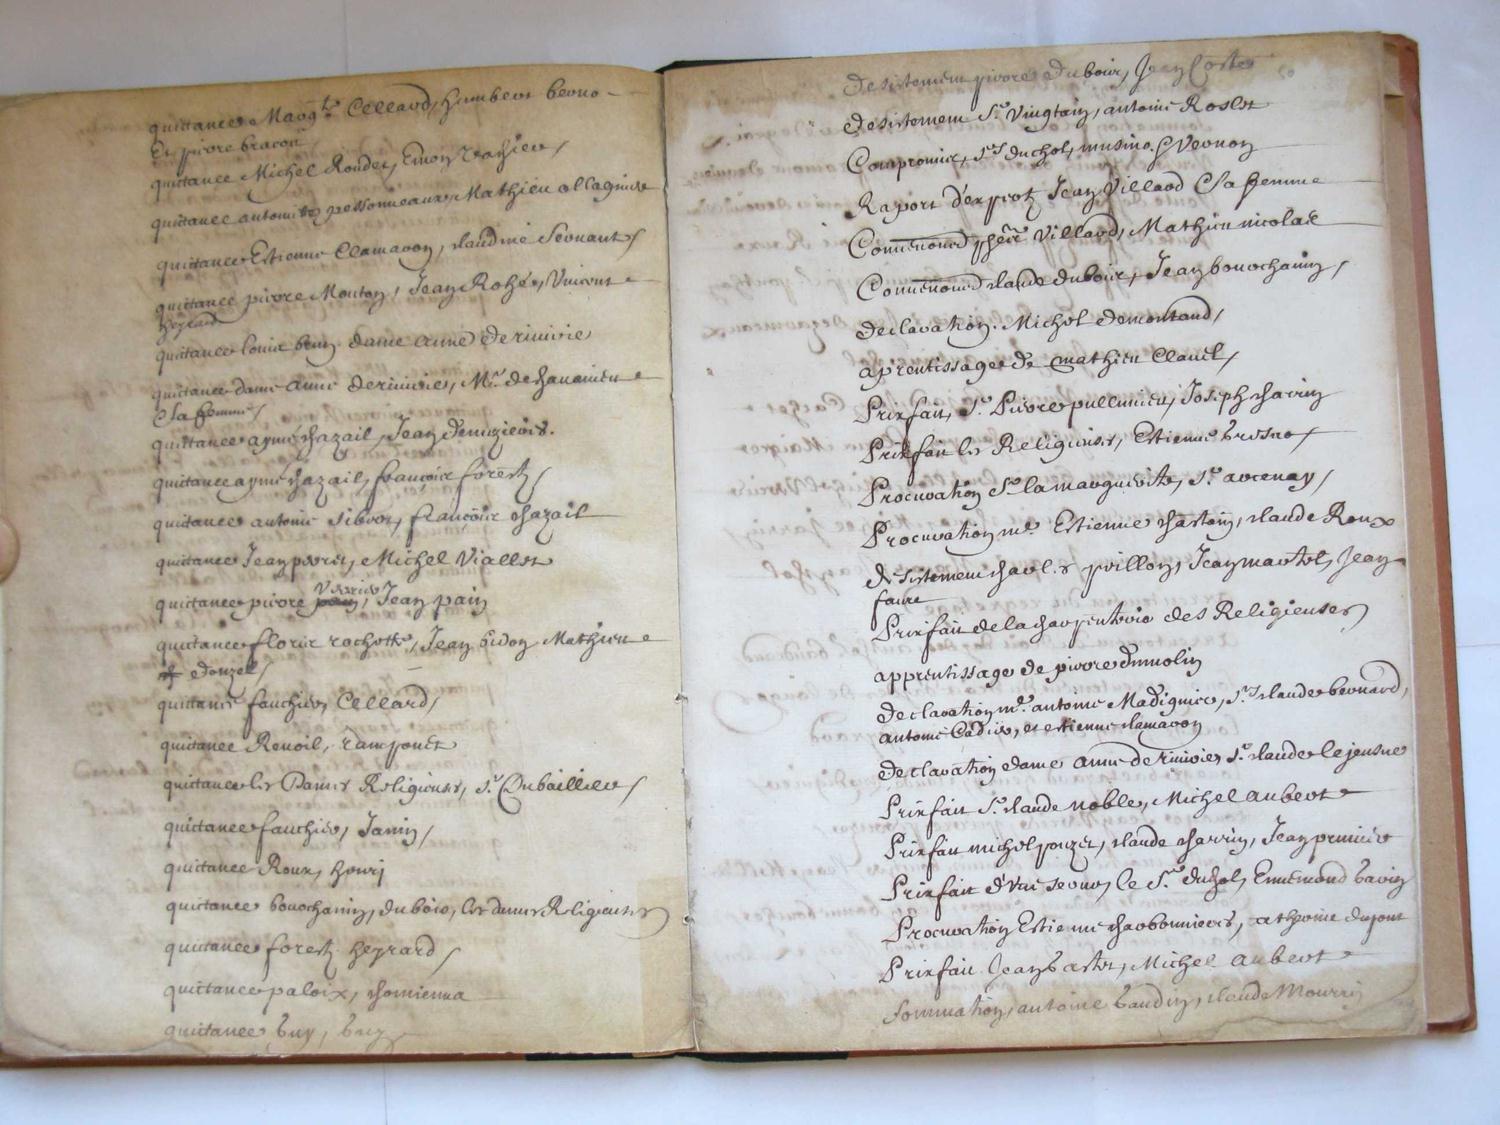 quittance Marg.te Cellard, humbert berno
Et pierre bracon
quittance Michel Rondet,
quittance antoinette pessonneaux, Mathieu ollagnier
quittance Estienne Clamaron, claudine servant
quittance pierre Mouton, Jean Rohé, Vincent
heyrard
quittance louis bruy dame anne de riverie
quittance dame anne de riverie, Mr. de
& sa femme
quittance aymé chazail, Jean
quittance aymé chazail, françois forest
quittance antoine sibert, françois chazail
quittance Jean perret, Michel Viallet
quittance pierre Verrier, Jean pain
quittance florie rochette, Jean bidon Mathieu
donzel
quittance fauchier, Cellard,
quittance Renoil, ramponet
quittance les Dames Religieuses, Sr. Dubaillier
quittance fauchier, Jamin,
quittance Roux, henri
quittance bonochamin, dubois, les dames Religieuses
quittance forest heyrard
quittance paloix, chomienna
quittance bruy, bruy
desistement pierre dubois, Jean Coste
desistement Sr. Vingtain, antoine Roslet
Compromis, Srs duchol, musino & Vernon
Raport d'expertz Jean Villard & sa femme
Villard, Mathieu nicolas
claude dubois, Jean bonochamin
declaration Michel demontand,
aprentissage de mathieu Clauel
Prixfait, Sr. Pierre pullinieu, Joseph charrin
Prixfait les Religieuses, Estienne brosse
Procuration Sr lamarguerite, Sr. arcenay
Procuration me. Estienne chastain, claude Roux
desistement charles peillon, Jean martel, Jean
faure
Prixfait de la charpenterie des Religieuses
apprentissage de pierre dumolin
declaration me. antoine Madignier, Srs claude bernard,
antoine Cadier, et estienne clamaron
declaration dame anne de riverie, Sr. claude lejeusne
Prixfait Sr. claude noble, Michel aubert
Prixfait michel pouzet, claude charrin, Jean prunier
Prixfait d'Vne serve, le Sr. duchol, Ennemond barin
Procuration Estienne charbonnier, catherine dupont
Prixfait Jean baster, Michel aubert
Sommation, antoine baudin, claude Mourrin